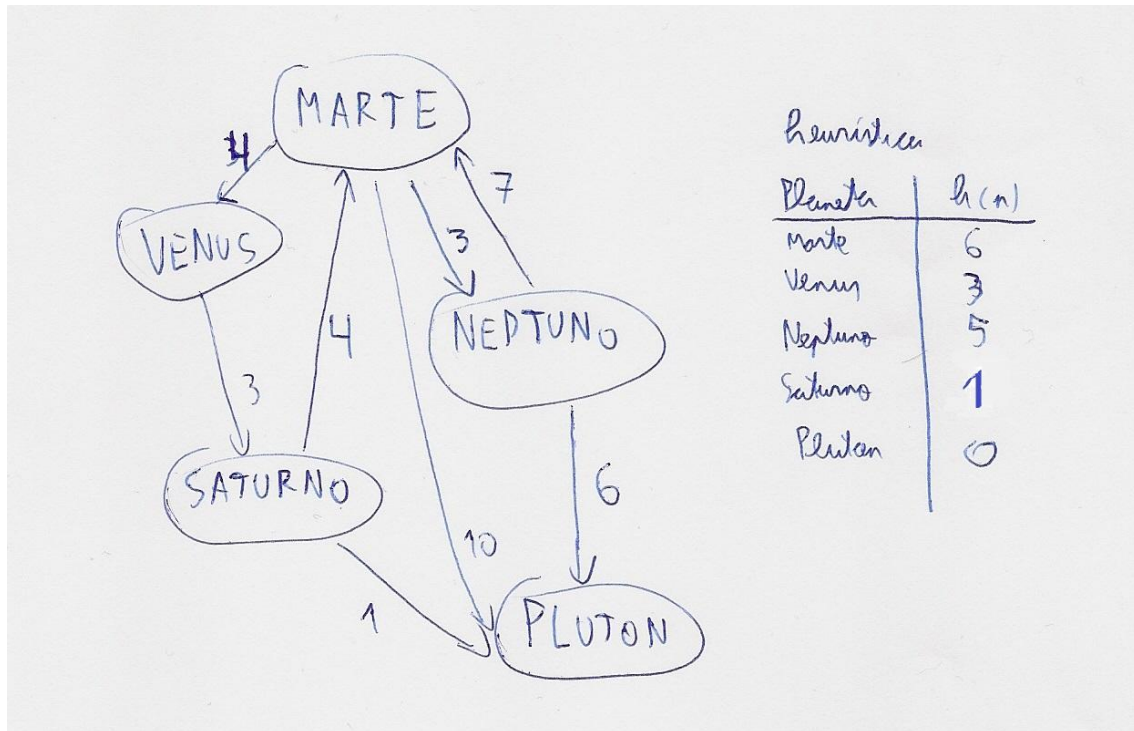 MARTE
4
7
VENUS
3
NEPTUNO
3
4
SATURNO
6
10
1
PLUTON
heurística
Planeta h(n)
Marte 6
Venus 3
Neptuno 5
Saturno 1
Pluton 0